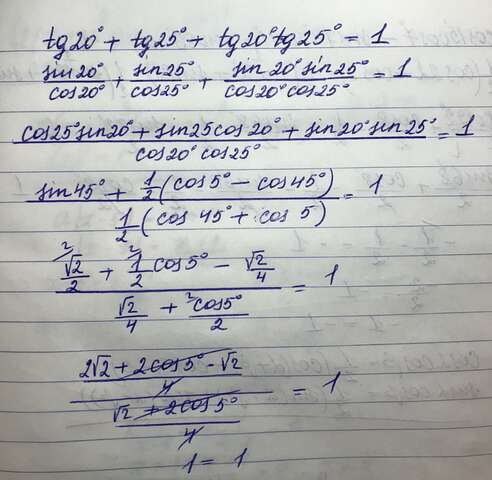 tg20° + tg25° + tg20°tg25° = 1
sin20°/cos20° + sin25°/cos25° + sin20°sin25°/cos20°cos25° = 1
(cos25°sin20° + sin25cos20° + sin20°sin25°)/(cos20°cos25°) = 1
(sin45° + 1/2(cos5° - cos45°))/(1/2(cos45° + cos5)) = 1
(√2/2 + 1/2cos5° - √2/4)/(√2/4 + cos5°/2) = 1
((2√2 + 2cos5° - √2)/4)/((√2 + 2cos5°)/4) = 1
1 = 1